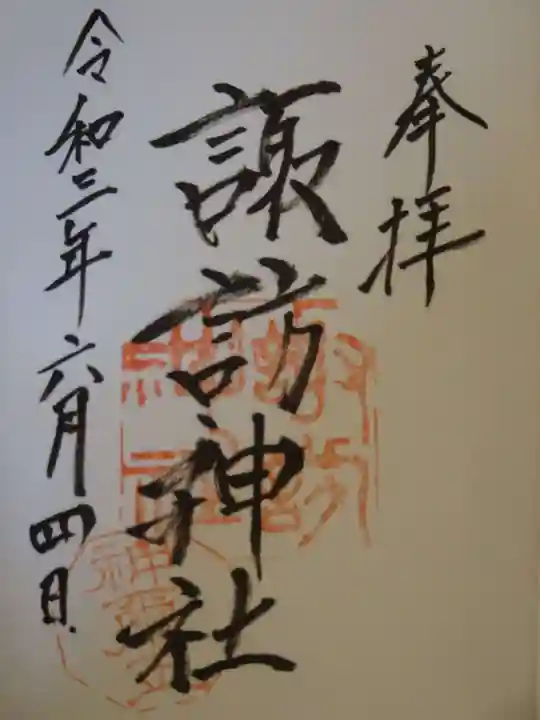 奉拝
諏訪神社
令和三年六月四日